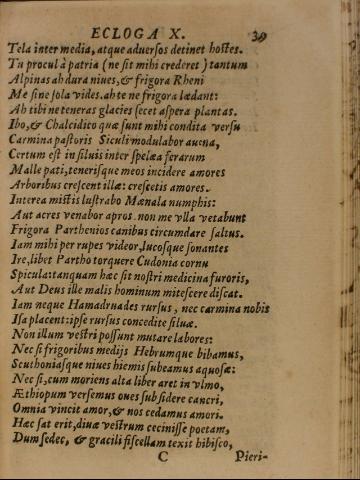 ECLOGA X. 39
Tela inter media, atque aduersos detinet hostes.
Tu procul à patria (ne sit mihi credere t) tantum
Alpinas ah dura niues, & frigora Rheni
Me sine sola vides. ah te ne frigora lædant:
Ah tibi ne teneras glacies secet aspera plantas.
Ibo, & Chalcidico quæ sunt mihi condita versu
Carmina pastoris Siculi modulabor auena,
Certum est in siluis inter spelæa ferarum
Malle pati, tenerisque meos incidere amores
Arboribus crescent illæ: crescetis amores.
Interea mistis lustrabo Mænala numphis:
Aut acres venabor apros. non me vlla vetabunt
Frigora Parthenios canibus circumdare saltus.
Iam mihi per rupes videor, lucosque sonantes
Ire, libet Partho torquere Cudonia cornu
Spicula: tanquam hæc sit nostri medicina furoris,
Aut Deus ille malis hominum mitescere discat.
Iam neque Hamadruades rursus, nec carmina nobis
Isa placent: ipse rursus concedite siluæ.
Non illum vestri possunt mutare labores:
Nec si frigoribus medijs Hebrumque bibamus,
Scuthoniasque niues hiemis subeamus aquosæ:
Nec si, cum moriens alta liber aret in vlmo,
Æthiopum versemus oues sub sidere cancri,
Omnia vincit amor, & nos cedamus amori.
Hæc sat erit, diuæ vestrum cecinisse poetam,
Dum sedec, & gracili fiscellam texit hibisco,
C Pieri-